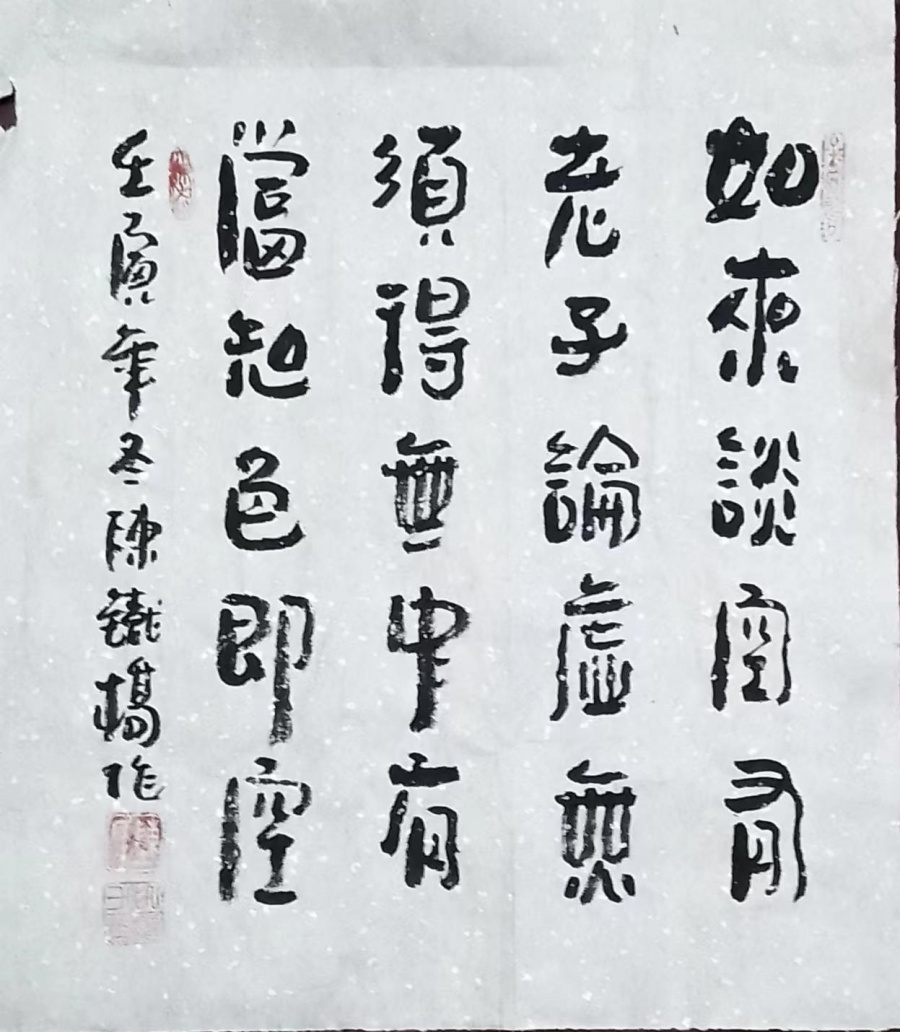 如來談空有
老子論虛無
須得無中有
當知色即空
壬寅年冬陳鐵楊作